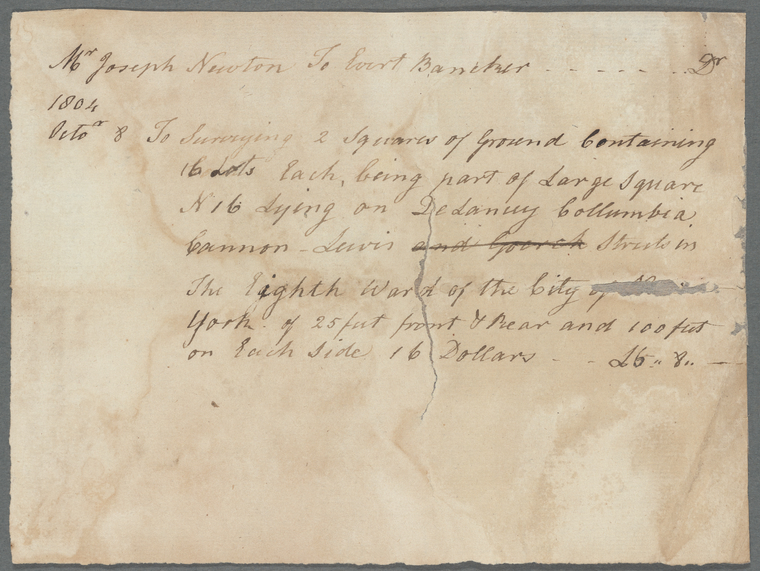 Mr Joseph Newton To Evert Bancker - - - - - Dr
1804
Octor 8 To Surveying 2 Squares of Ground Containing
16 Lots Each, being part of Large Square
N 16 Lying on DeLancey Collumbia
Cannon - Lewis and Goerck Streets in
The Eighth Ward of the City of
York of 25 feet front & Rear and 100 feet
on Each Side 16 Dollars - - £6 " 8 " —